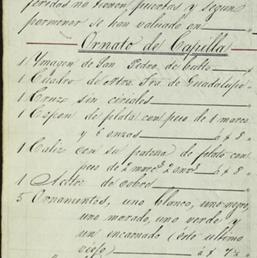 feridas no tienen puertas y segun
pormenor se han valuado en
Ornato de Capilla
1 Ymagen de San Pedro de bulto
1 Cuadro de Ntra. Sra. de Guadalupe
1 Cruz sin ciriales
1 Copon de plata con peso de 1 marco
y 6 onzas á $
1 Caliz con su patena de plata con
peso de 2 marcs. 2 onzs. á $
1 de cobre
5 Ornamentos, uno blanco, uno negro,
uno morado, uno verde y
un encarnado (éste ultimo
viejo) á $ 7